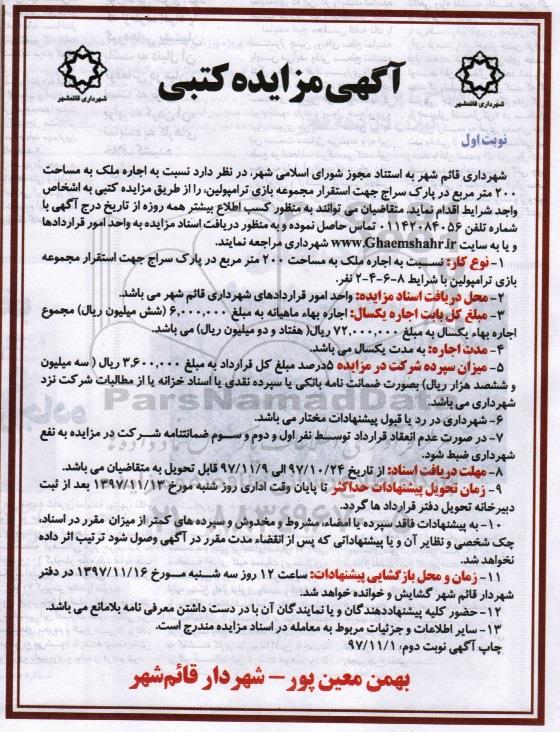 آگهی مزایده کتبی
شهرداری قائمشهر
شهرداری قائمشهر
نوبت اول
شهرداری قائم شهر به استناد مجوز شورای اسلامی شهر، در نظر دارد نسبت به اجاره ملک به مساحت
۲۰۰ متر مربع در پارک سراج جهت استقرار مجموعه بازی ترامپولین، را از طریق مزایده کتبی به اشخاص
واجد شرایط اقدام نماید. متقاضیان می توانند به منظور کسب اطلاع بیشتر همه روزه از تاریخ درج آگهی با
شماره تلفن ۰۱۱۴۲۰۸۴۰۵۶ تماس حاصل نموده و به منظور دریافت اسناد مزایده به واحد امور قراردادها
و یا به سایت www.Ghaemshahr.ir شهرداری مراجعه نمایند.
۱- نوع کار: نسبت به اجاره ملک به مساحت ۲۰۰ متر مربع در پارک سراج جهت استقرار مجموعه
بازی ترامپولین با شرایط ۸-۶-۴-۲ نفر.
۲- محل دریافت اسناد مزایده: واحد امور قراردادهای شهرداری قائم شهر می باشد.
۳- مبلغ کل بابت اجاره یکسال: اجاره بهاء ماهیانه به مبلغ ۶,۰۰۰,۰۰۰ (شش میلیون ریال) مجموع
اجاره بهاء یکسال به مبلغ ۷۲,۰۰۰,۰۰۰ ریال( هفتاد و دو میلیون ریال) می باشد.
۴- مدت اجاره: به مدت یکسال می باشد.
۵- میزان سپرده شرکت در مزایده ۵درصد مبلغ کل قرارداد به مبلغ ۳,۶۰۰,۰۰۰ ریال ( سه میلیون
و ششصد هزار ریال) بصورت ضمانت نامه بانکی یا سپرده نقدی یا اسناد خزانه یا از مطالبات شرکت نزد
شهرداری می باشد.
۶- شهرداری در رد یا قبول پیشنهادات مختار می باشد.
۷- در صورت عدم انعقاد قرارداد توسط نفر اول و دوم و سوم ضمانتنامه شرکت در مزایده به نفع
شهرداری ضبط شود.
۸- مهلت دریافت اسناد: از تاریخ ۹۷/۱۰/۲۴ الی ۹۷/۱۱/۹ قابل تحویل به متقاضیان می باشد.
۹- زمان تحویل پیشنهادات حداکثر تا پایان وقت اداری روز شنبه مورخ ۱۳۹۷/۱۱/۱۳ بعد از ثبت
دبیرخانه تحویل دفتر قرارداد ها گردد.
۱۰- به پیشنهادات فاقد سپرده یا امضاء، مشروط و مخدوش و سپرده های کمتر از میزان مقرر در اسناد،
چک شخصی و نظایر آن و یا پیشنهاداتی که پس از انقضاء مدت مقرر در آگهی وصول شود ترتیب اثر داده
نخواهد شد.
۱۱- زمان و محل بازگشایی پیشنهادات: ساعت ۱۲ روز سه شنبه مورخ ۱۳۹۷/۱۱/۱۶ در دفتر
شهردار قائم شهر گشایش و خوانده خواهد شد.
۱۲- حضور کلیه پیشنهاددهندگان و یا نمایندگان آن با در دست داشتن معرفی نامه بلامانع می باشد.
۱۳- سایر اطلاعات و جزئیات مربوط به معامله در اسناد مزایده مندرج است.
چاپ آگهی نوبت دوم، ۹۷/۱۱/۱
بهمن معین پور – شهردار قائم‌شهر
ParsNamadData